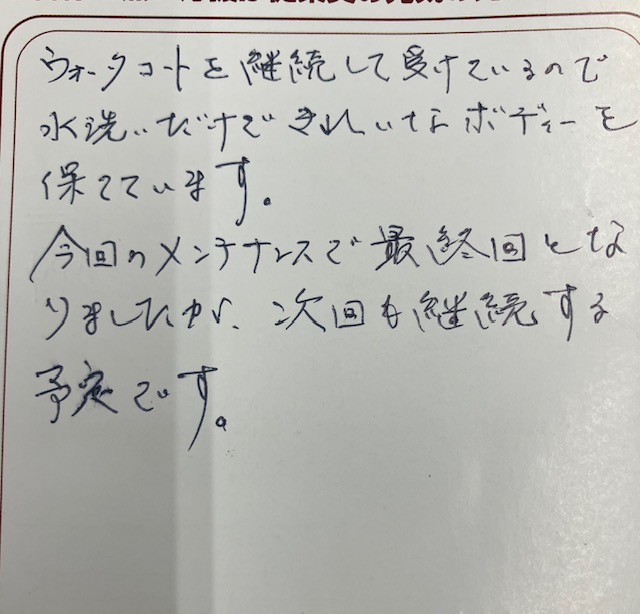 ウォータコートを継続して受けているので
水洗いだけできれいなボディーを
保てています。
今回のメンテナンスで最終回とな
りましたが、次回も継続する
予定です。